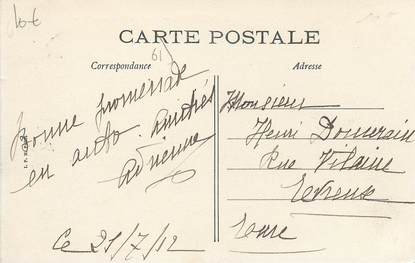 10€
CARTE POSTALE
61
Correspondance
Adresse
Bonne promenade
en auto. Amitiés
Adrienne
Ce 21/7/12
Monsieur
Henri
Rue Vilaine
Evreux
Eure